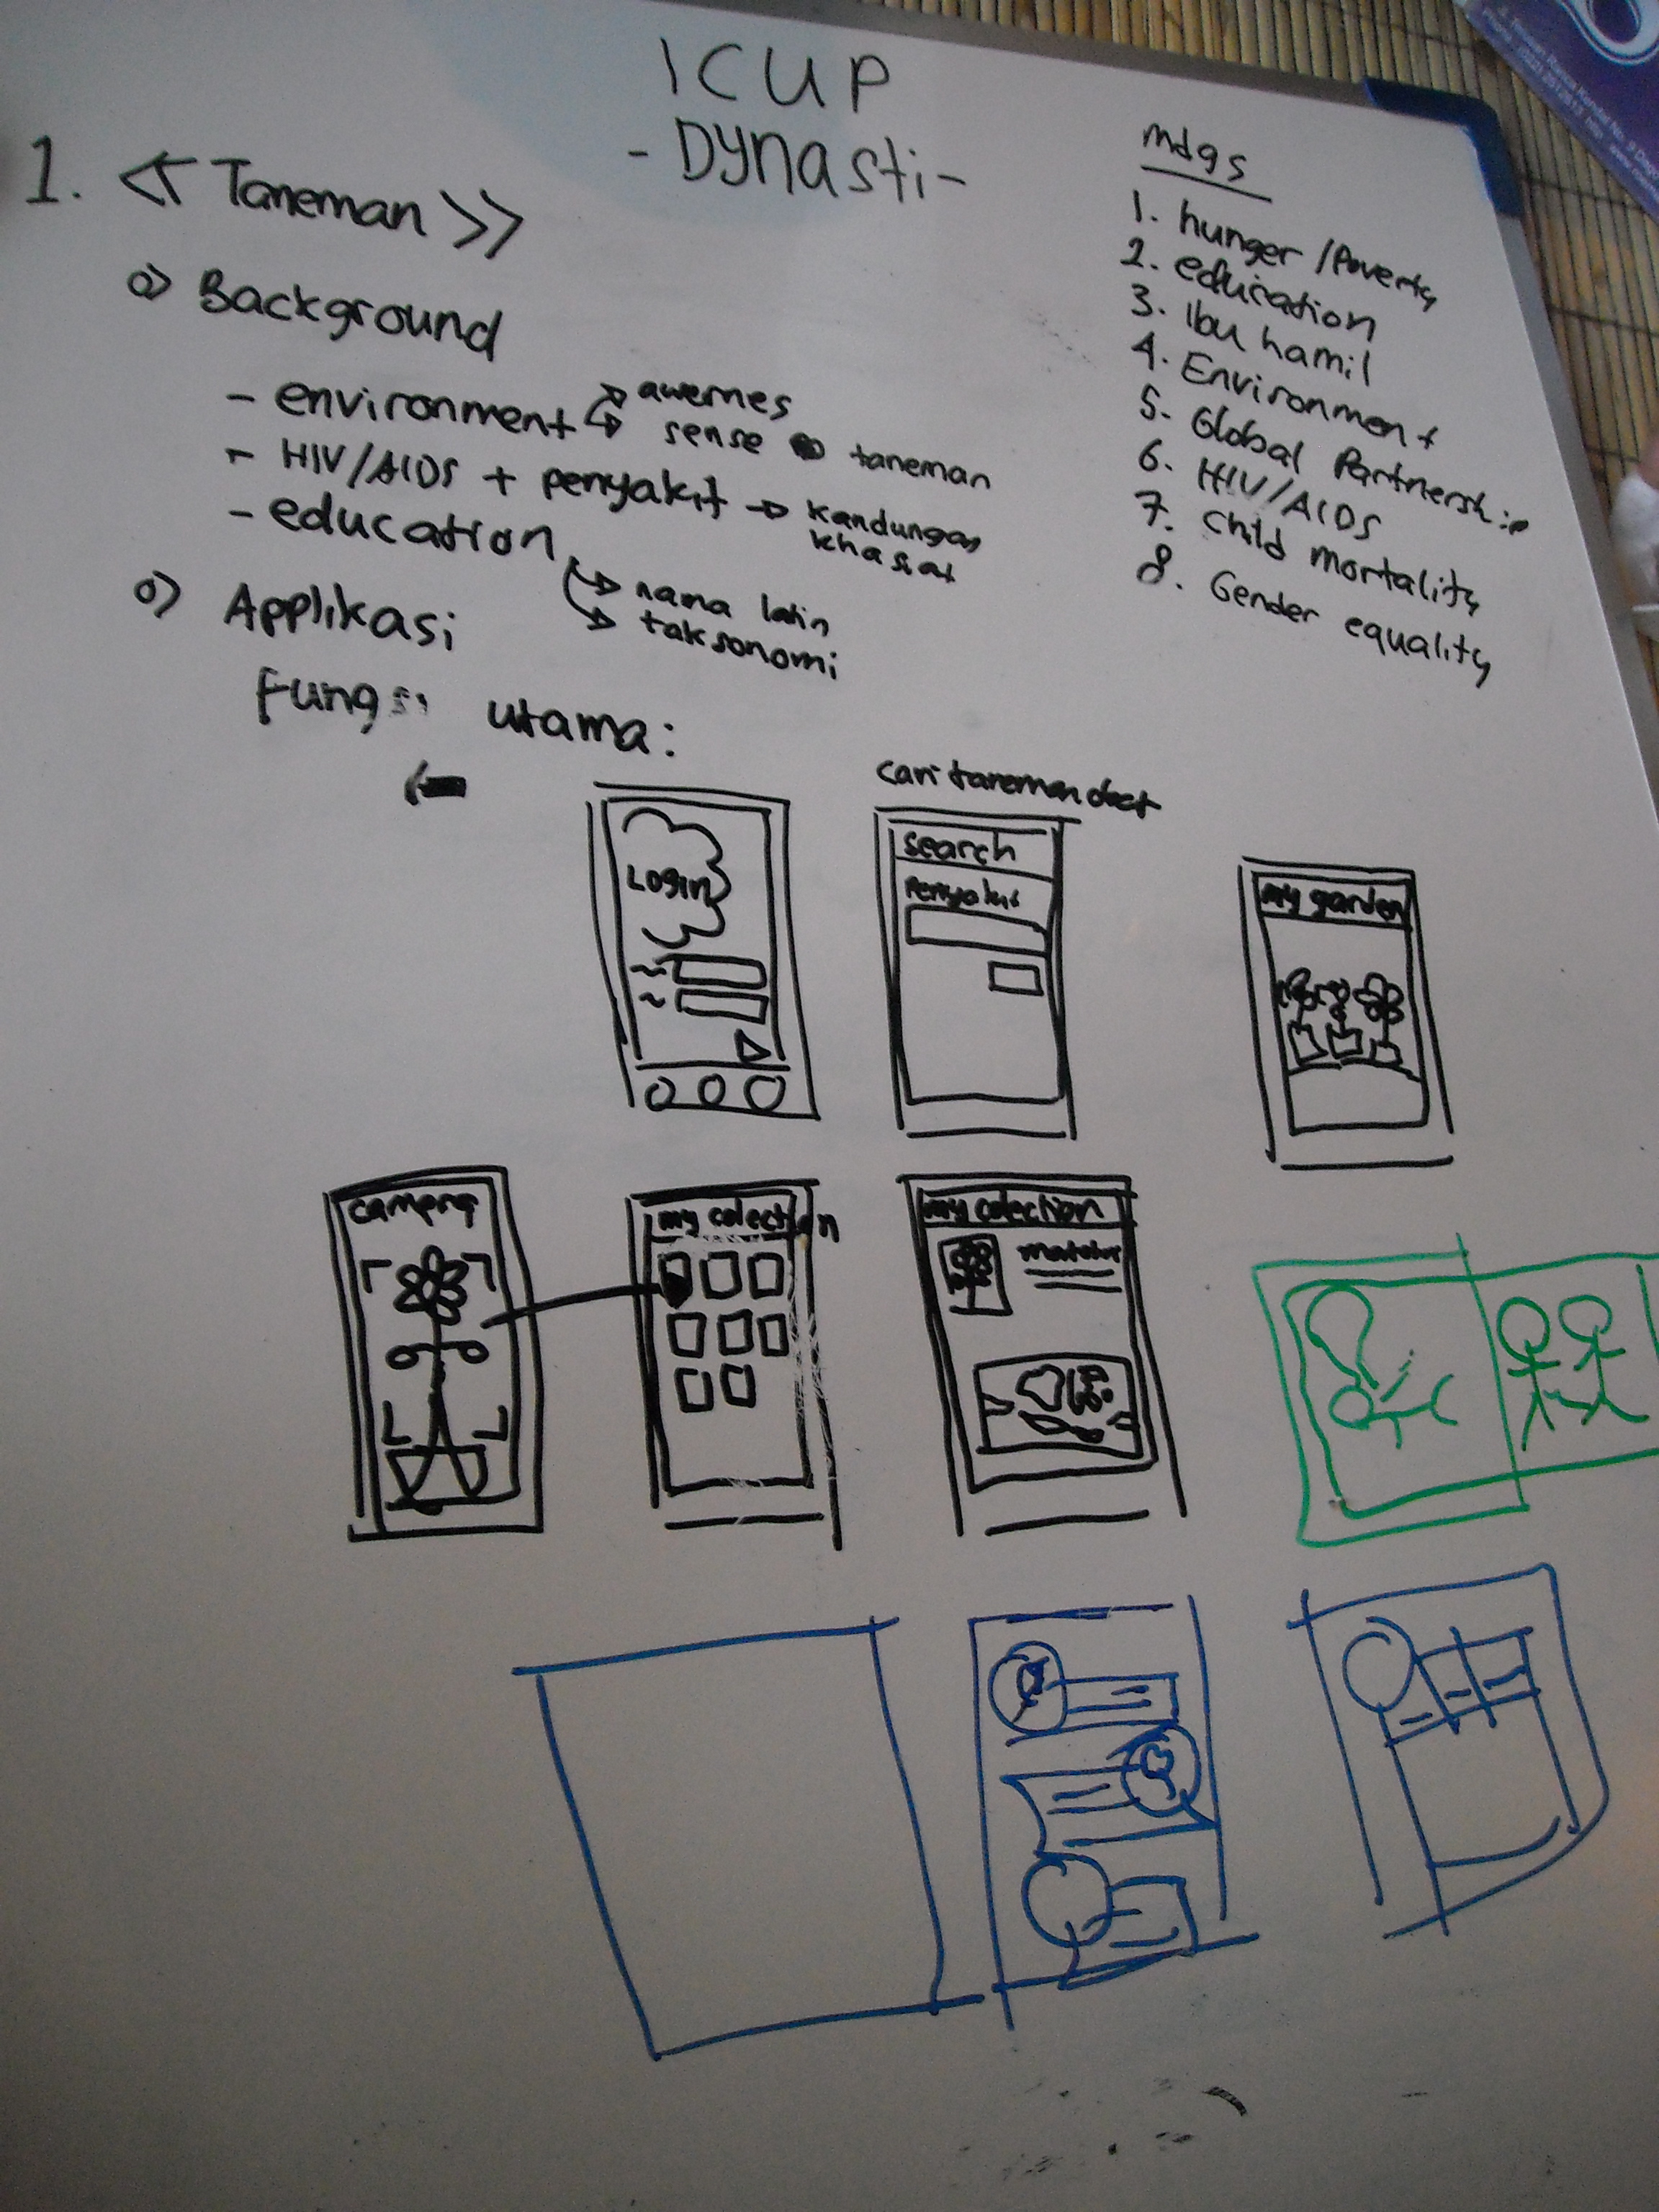 ICUP
- DYNASTI -
1. << Taneman >>
o) Background
- environment → awernes
→ sense taneman
- HIV/AIDS + penyakit → kandungan
khasiat
- education
→ nama latin
→ taksonomi
o) Applikasi
Fungsi utama:
mdgs
1. hunger / Poverty
2. education
3. Ibu hamil
4. Environment
5. Global Partnership
6. HIV/AIDS
7. Child mortality
8. Gender equality
Login
cari taneman obat
search
Penyakit
my garden
camera
my colection
my colection